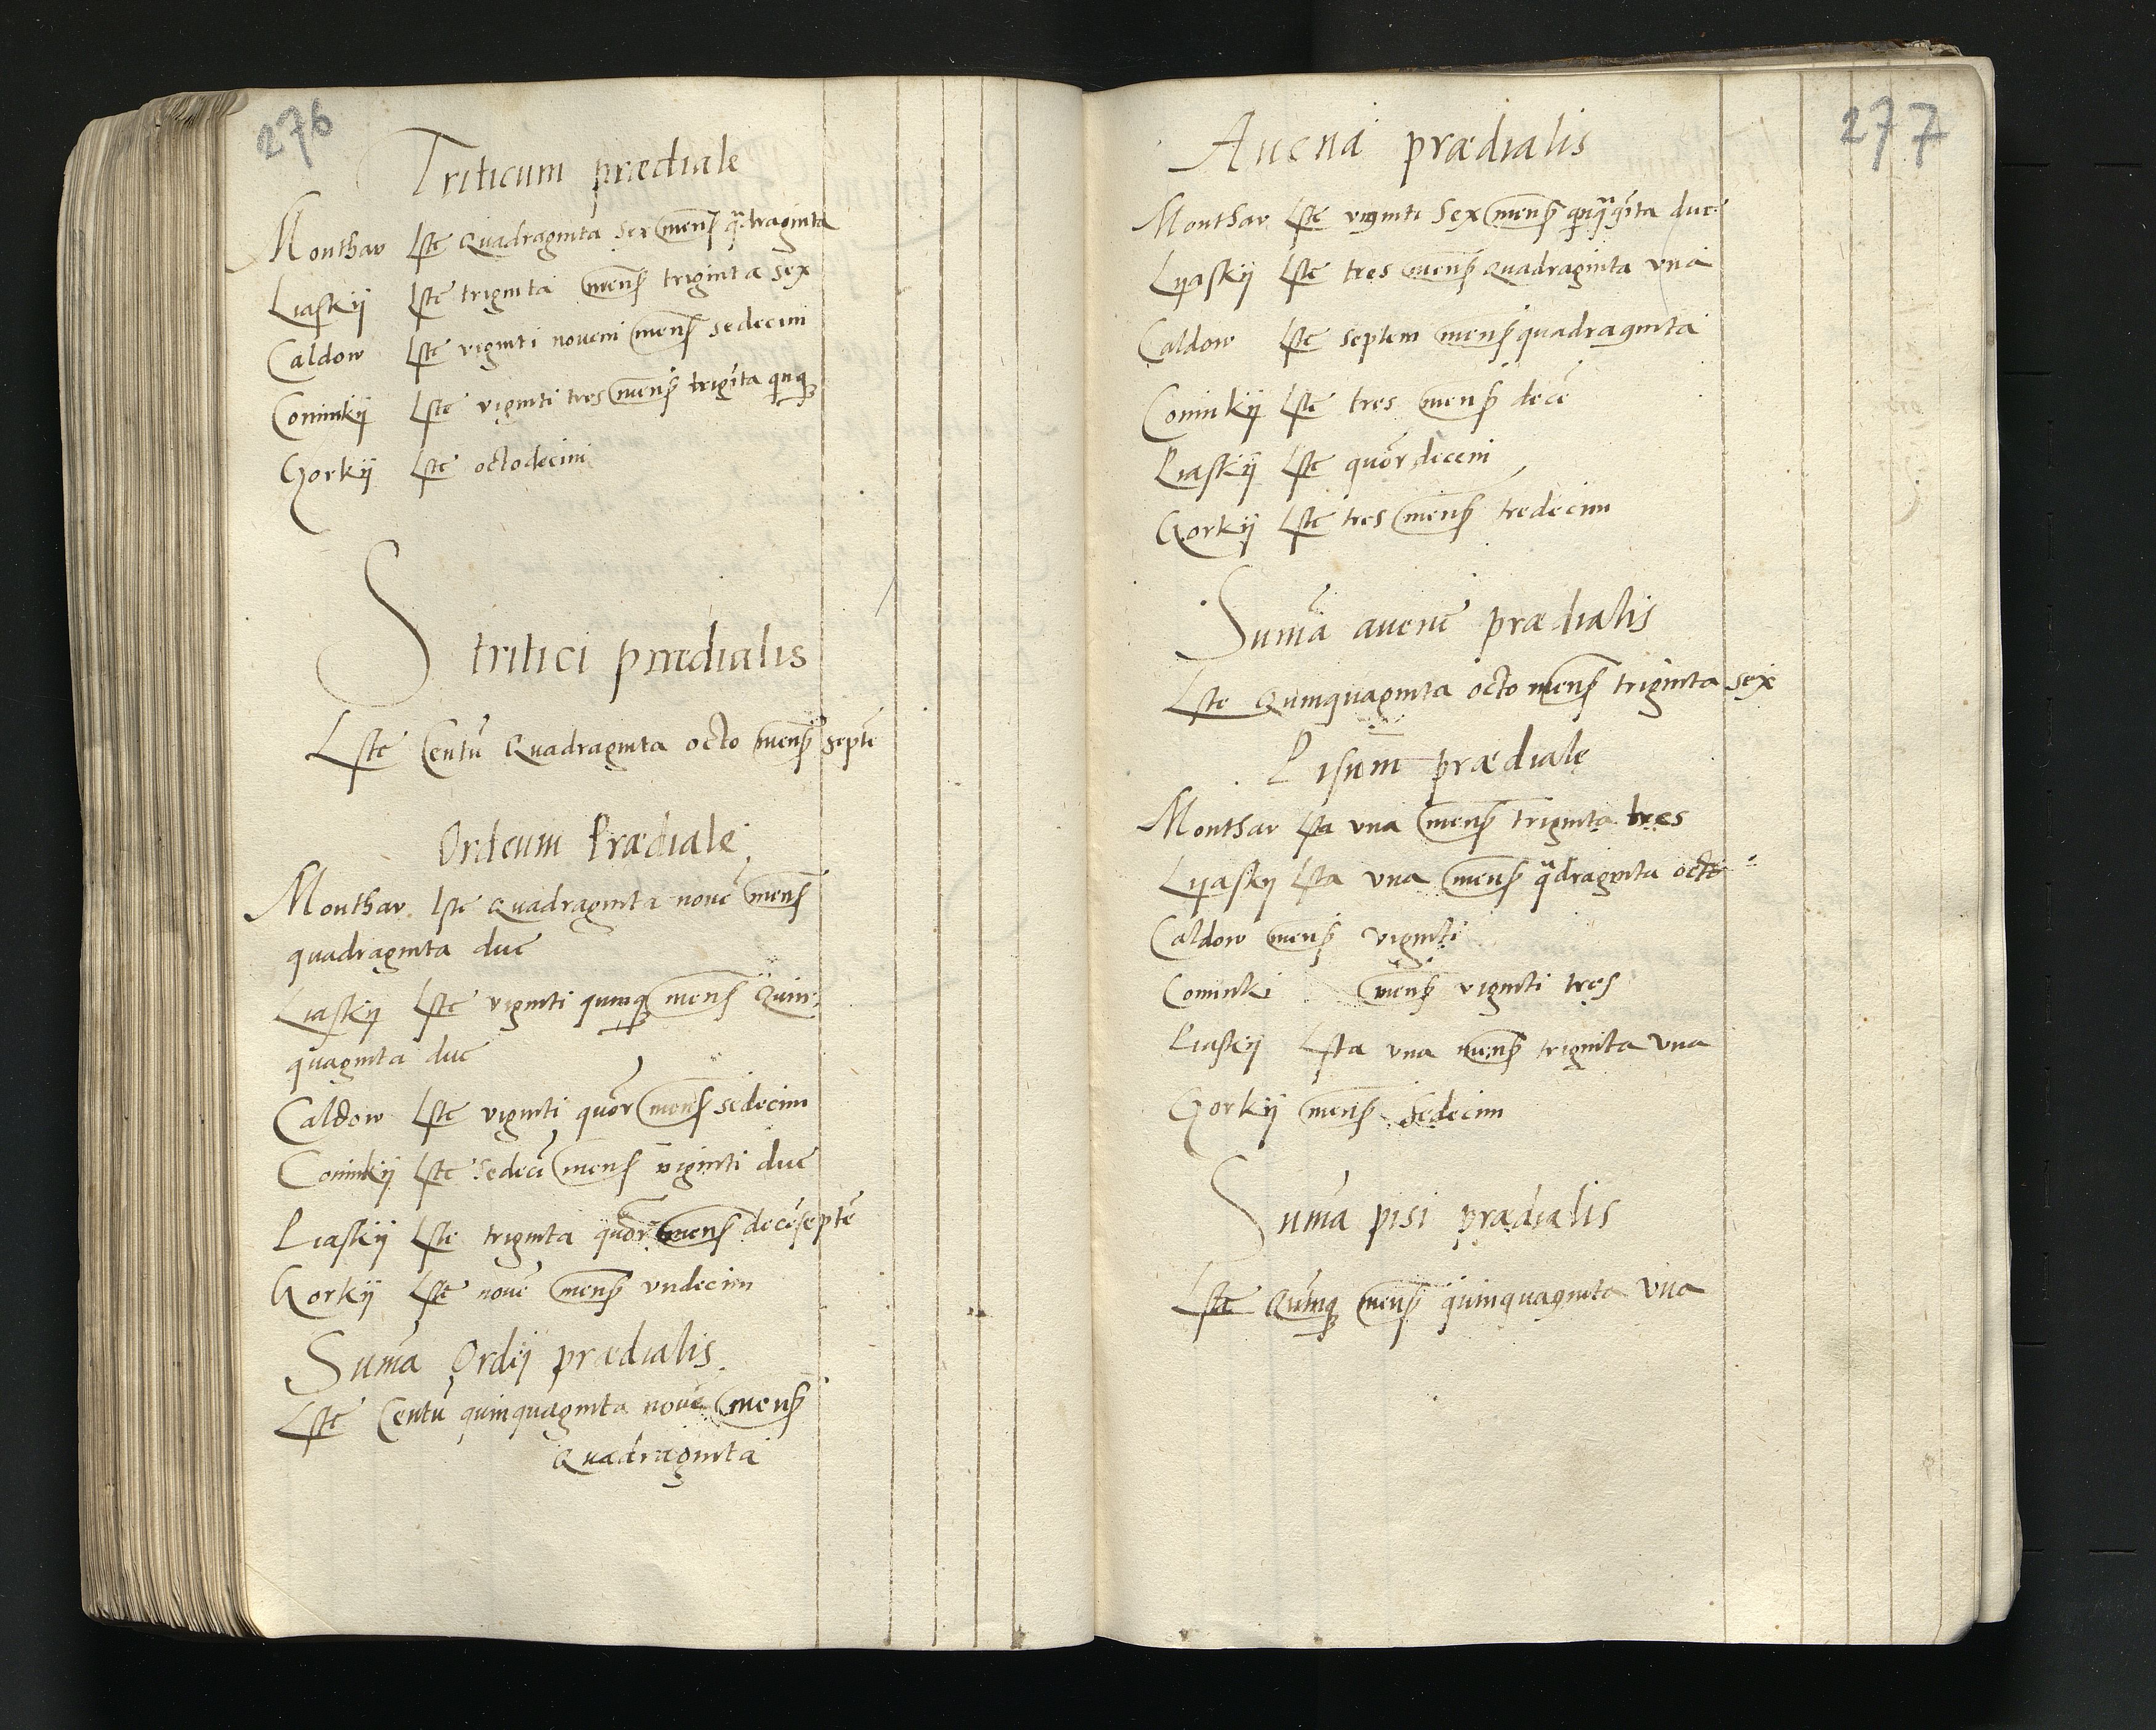 276
Triticum prædiale
Monthav Lste Quadraginta sex mens quadraginta
Liaskij Lste triginta mens triginta sex
Caldow Lste viginti novem mens sedecim
Coninkij Lste viginti tres mens trigīta qnq
Gorkij Lste octodecim
S tritici prædialis
Lste Centū Quadraginta octo mens septē
Ordeum Prædiale
Monthav Lste Quadraginta novē mens
quadraginta due
Liaskij Lste viginti quinq mens Quin
quaginta due
Caldow Lste viginti quōr mens sedecim
Coninkij Lste sedecī mens viginti due
Piaskij Lste triginta quōr mens decēseptē
Gorkij Lste novē mens vndecim
Sum̄a Ordij prædialis
Lste Centū quinquaginta novē mens
Quadraginta
277
Auena prædialis
Monthav Lste viginti Sex mens due
Lyaskij Lste tres mens Quadraginta vna
Caldow Lste septem mens quadraginta
Coninkij Lste tres mens decē
Piaskij Lste quōrdecem
Gorkij Lste tres mens tredecim
Sum̄a auene prædialis
Lste Quinquaginta octo mens triginta sex
Pisum prædiale
Monthav Lsta vna mens triginta tres
Lyaskij Lsta vna mens qadraginta octo
Caldow mens viginti
Coninki mens viginti tres
Piaskij Lsta vna mens triginta vna
Gorkij mens Sedecim
Sum̄a pisi prædialis
Lste Quinq mens quinquaginta vna